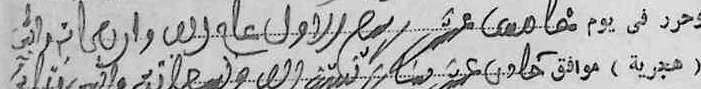 وحرر فى يوم خامس عشر ربيع الاول عام الف واربعمائة واثنين
( هجرية ) موافق حادى عشر يناير سنة الف وتسعمائة واثنين وثمانين